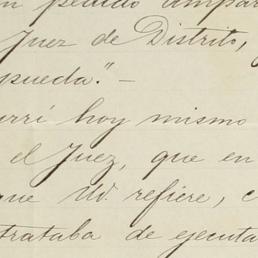 n pedido ampar
Juez de Distrito,
pueda."—
urrí hoy mismo
el Juez, que en
que Ud. refiere, c
trataba de ejecuta